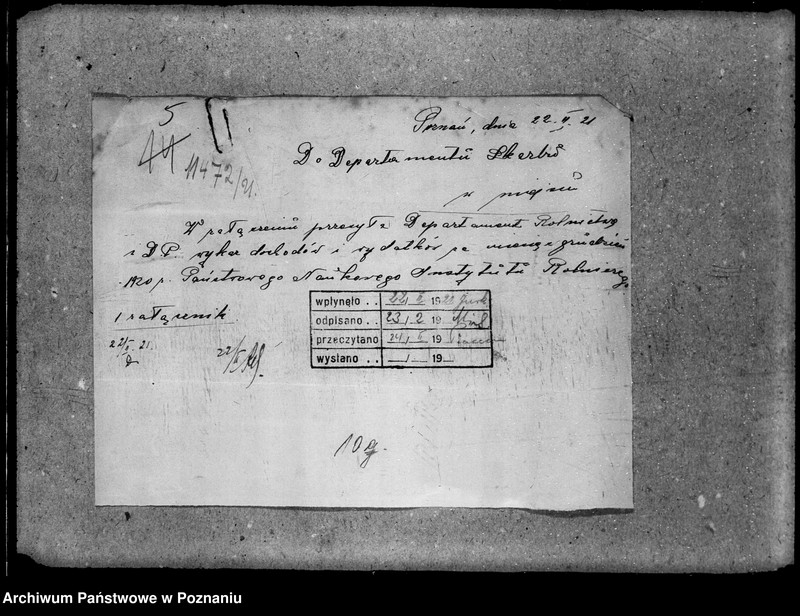 5
11472/21.
Poznań, dnia 22. II. 21
Do Departamentu Skarbu
w miejscu
W załączeniu przesyła Departament Rolnictwa
i D.P. wykaz dochodów i wydatków za miesiąc grudzień
1920 r. Państwowego Naukowego Instytutu Rolniczego
1 załącznik
22/II. 21.
22/II
wpłynęło . . 22/2 19
odpisano . . 23/2 19
przeczytano 24/2 19
wysłano . . / 19
10 g.
Archiwum Państwowe w Poznaniu